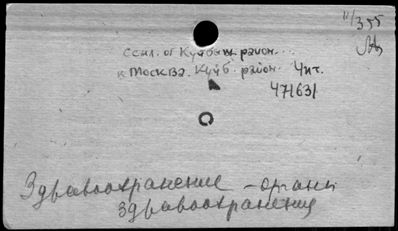 11/355
Ссыл. от Куйбыш. район...
к Москва. Куйб. район. Чит.
47163/
Здравоохранение - органы
здравоохранения